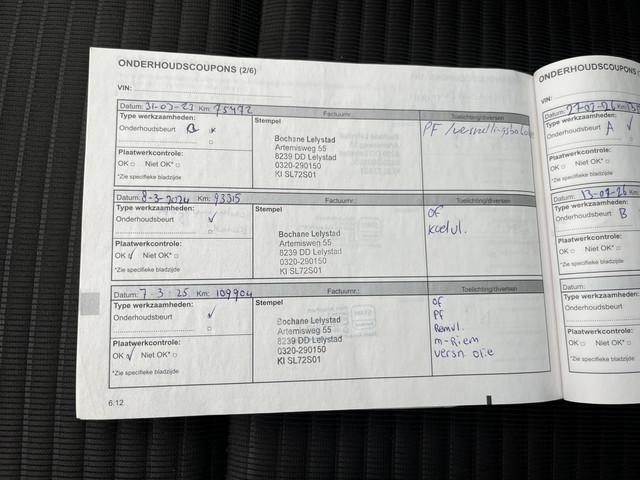 ONDERHOUDSCOUPONS (2/6)
VIN:
Datum: 31-03-23 Km: 75472
Factuurnr.:
Toelichting/diversen
Type werkzaamheden:
Onderhoudsbeurt
Stempel
PF
Bochane Lelystad
Artemisweg 55
8239 DD Lelystad
0320-290150
KI SL72S01
Plaatwerkcontrole:
OK □ Niet OK* □
*Zie specifieke bladzijde
Datum: 8-3-2024 Km: 93315
Factuurnr.:
Toelichting/diversen
Type werkzaamheden:
Onderhoudsbeurt √
Stempel
OF
Koelvl.
Bochane Lelystad
Artemisweg 55
8239 DD Lelystad
0320-290150
KI SL72S01
Plaatwerkcontrole:
OK √ Niet OK* □
*Zie specifieke bladzijde
Datum: 7-3-25 Km: 109904
Factuurnr.:
Toelichting/diversen
Type werkzaamheden:
Onderhoudsbeurt √
Stempel
OF
PF
Remvl.
m-Riem
versn olie
Bochane Lelystad
Artemisweg 55
8239 DD Lelystad
0320-290150
KI SL72S01
Plaatwerkcontrole:
OK √ Niet OK* □
*Zie specifieke bladzijde
6.12
ONDERHOUDSCOUPONS
VIN:
Type werkzaamheden:
Onderhoudsbeurt A √
Plaatwerkcontrole:
OK □ Niet OK* □
*Zie specifieke bladzijde
Datum: Km
Type werkzaamheden:
Onderhoudsbeurt B
Plaatwerkcontrole:
OK □ Niet OK* □
*Zie specifieke bladzijde
Datum:
Type werkzaamheden:
Onderhoudsbeurt
Plaatwerkcontrole:
OK □ Niet OK* □
*Zie specifieke bladzijde